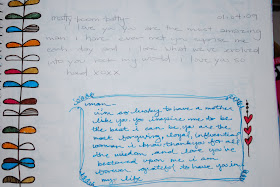 01.31.09
love you you are the most amazing
man i have ever met you surprise me
each day and i love what we've evolved
into you mean my world i love you so
hard xoxx
mom-
i'm so lucky to have a mother
like you. you inspire me to be
the best i can be. you are the
most inspiring, loyal, influential
woman i know. thank you for all
the wisdom and love you've
bestowed upon me. i am
forever grateful to have you in
my life